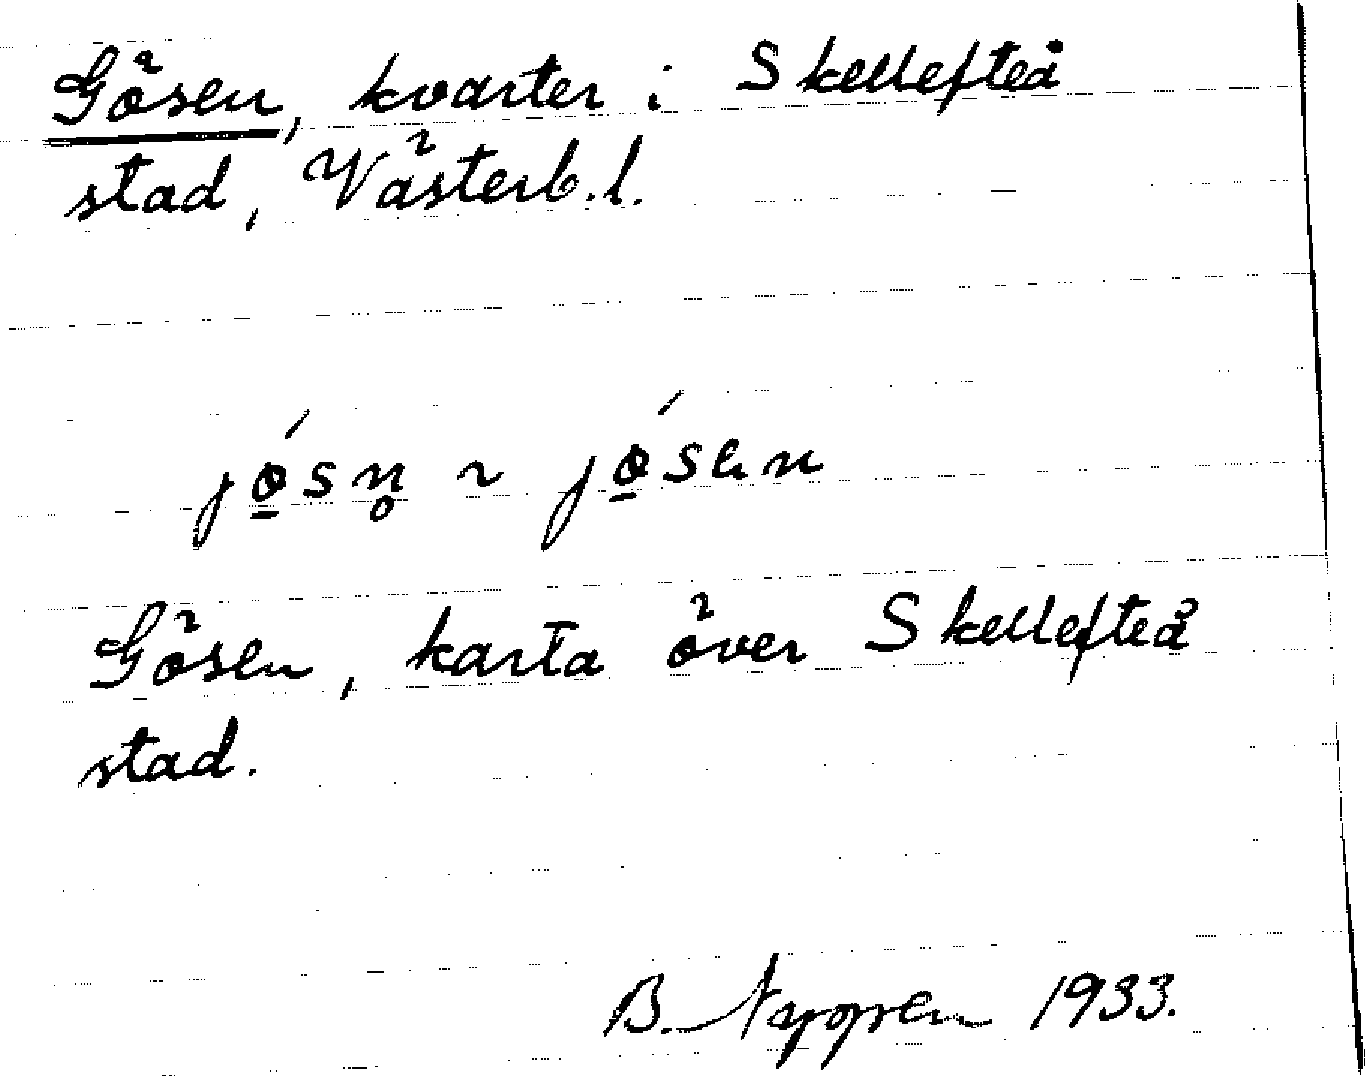 Gösen, kvarter i Skellefteå
stad, Västerb.l.
jǿ̱sn̥ ~ jǿ̱sen
Gösen, karta över Skellefteå
stad.
B. 1933.